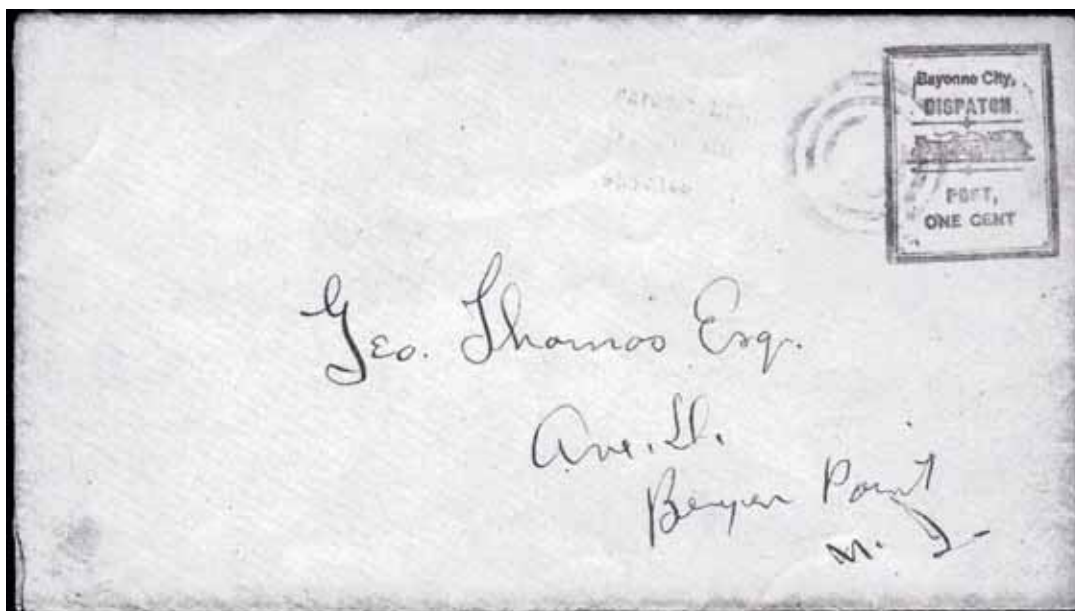 Bayonne City,
DISPATCH
POST,
ONE CENT
Geo. Thomas Esq.
Ave.
Bergen Point
N. J.